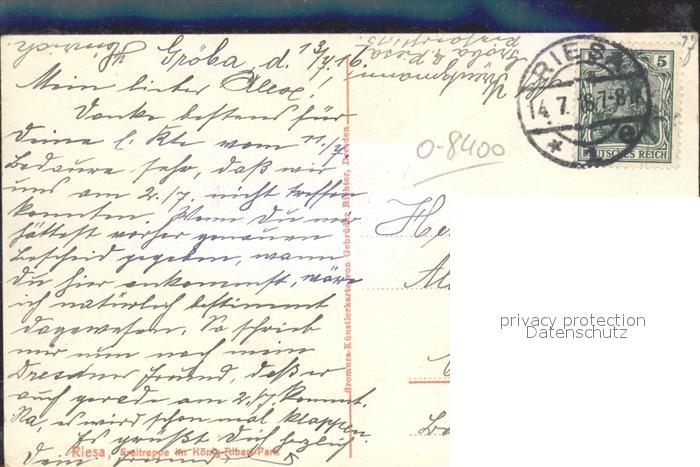 Gröba, d. 13/7.16.
Mein lieber Alex!
Danke bestens für
Deine l. Kte vom 11./7.
Bedaure sehr, daß wir
uns am 2./7. nicht treffen
konnten. Wenn Du mir
hättest vorher genauen
Bescheid gegeben, wann
Du hier ankommst, wäre
ich natürlich bestimmt
dagewesen. So schrieb
mir nun noch mein
Dresdner Freund, daß er
auch gerade am 2./7. kommt.
Na, es wird schon mal klappen.
Es grüßt Dich herzlich
Dein Freund
Riesa, Freitreppe im König-Albert-Park
Bromura-Künstlerkarte von Gebrüder Richter, Dresden
Gröba b. Riesa
RIESA
14.7.16.7-8N
* 1 e
5
DEUTSCHES REICH
0-8400
privacy protection
Datenschutz